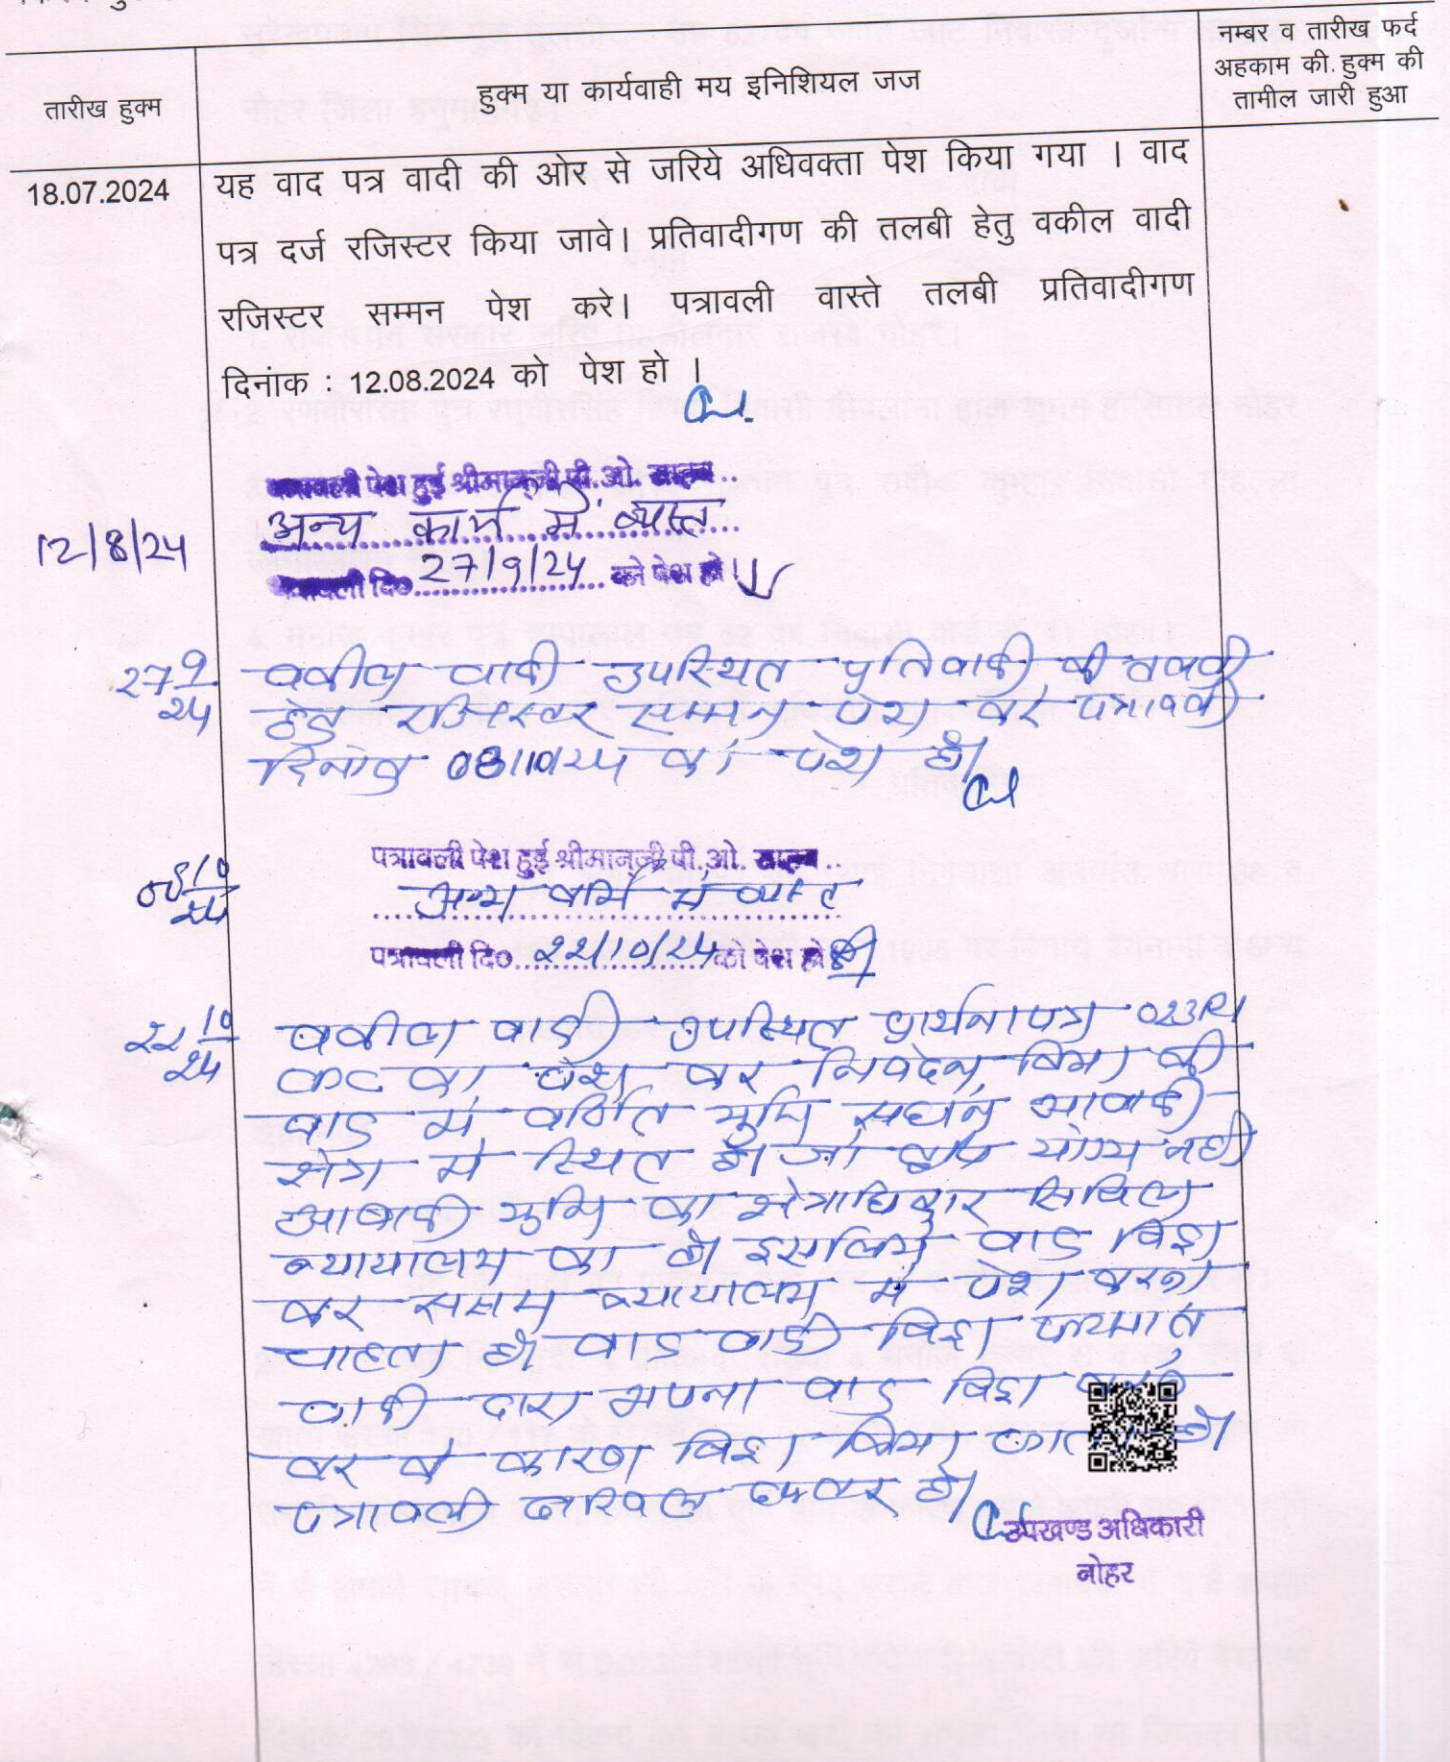 नम्बर व तारीख फर्द
अहकाम की. हुक्म की
तामील जारी हुआ
हुक्म या कार्यवाही मय इनिशियल जज
तारीख हुक्म
18.07.2024
यह वाद पत्र वादी की ओर से जरिये अधिवक्ता पेश किया गया । वाद
पत्र दर्ज रजिस्टर किया जावे। प्रतिवादीगण की तलबी हेतु वकील वादी
रजिस्टर सम्मन पेश करे। पत्रावली वास्ते तलबी प्रतिवादीगण
दिनांक : 12.08.2024 को पेश हो ।
पेश हुई श्रीमान् जी पी.ओ. साहब
12/8/24
अन्य कार्य में व्यस्त
दि० 27/9/24 को पेश हो।
27 9/24
वकील वादी उपस्थित प्रतिवादी की तलबी
हेतु रजिस्टर सम्मन पेश करे पत्रावली
दिनांक 08/10/24 को पेश हो।
पत्रावली पेश हुई श्रीमान जी पी.ओ. साहब
08 10/24
अन्य कार्य में व्यस्त
पत्रावली दि० 22/10/24 को पेश हो
22 10/24
वकील वादी उपस्थित प्रार्थना पत्र 023R1
का पेश कर निवेदन किया की
वाद में वर्णित भूमि सघन आबादी
क्षेत्र में स्थित है। जो कृषि योग्य नही
आबादी भूमि का क्षेत्राधिकार सिविल
न्यायालय का है। इसलिये वाद विड्रा
कर सक्षम न्यायालय में पेश करना
चाहता है। वाद वादी विड्रा
वादी द्वारा अपना वाद विड्रा
कर के कारण विड्रा किया है।
पत्रावली दाखिल दफ्तर हो।
उपखण्ड अधिकारी
नोहर